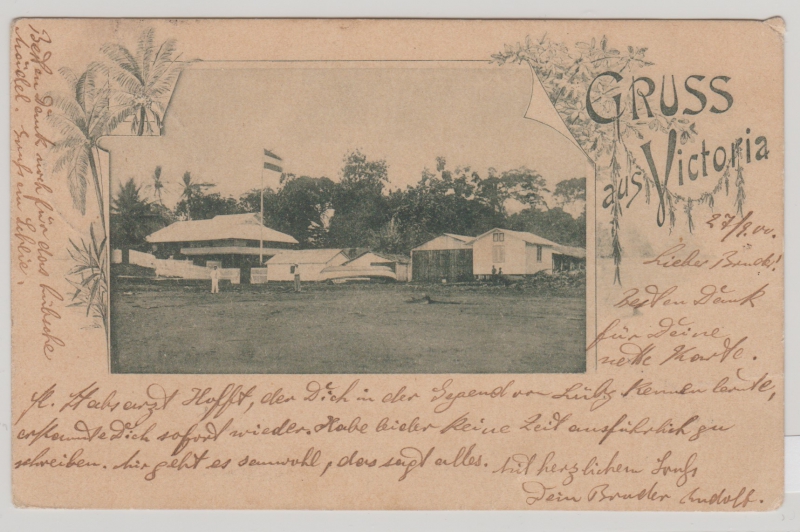 GRUSS
aus Victoria
27/9.00.
Lieber Bruder!
Besten Dank
für Deine
nette Karte.
Stabsarzt Hofft, der Dich in der Gegend von Lübz kennen lernte,
erkannte Dich sofort wieder. Habe leider keine Zeit ausführlich zu
schreiben. Mir geht es sauwohl, das sagt alles. Mit herzlichem Gruß
Dein Bruder Rudolf.
Besten Dank noch für das hübsche
Mädel.